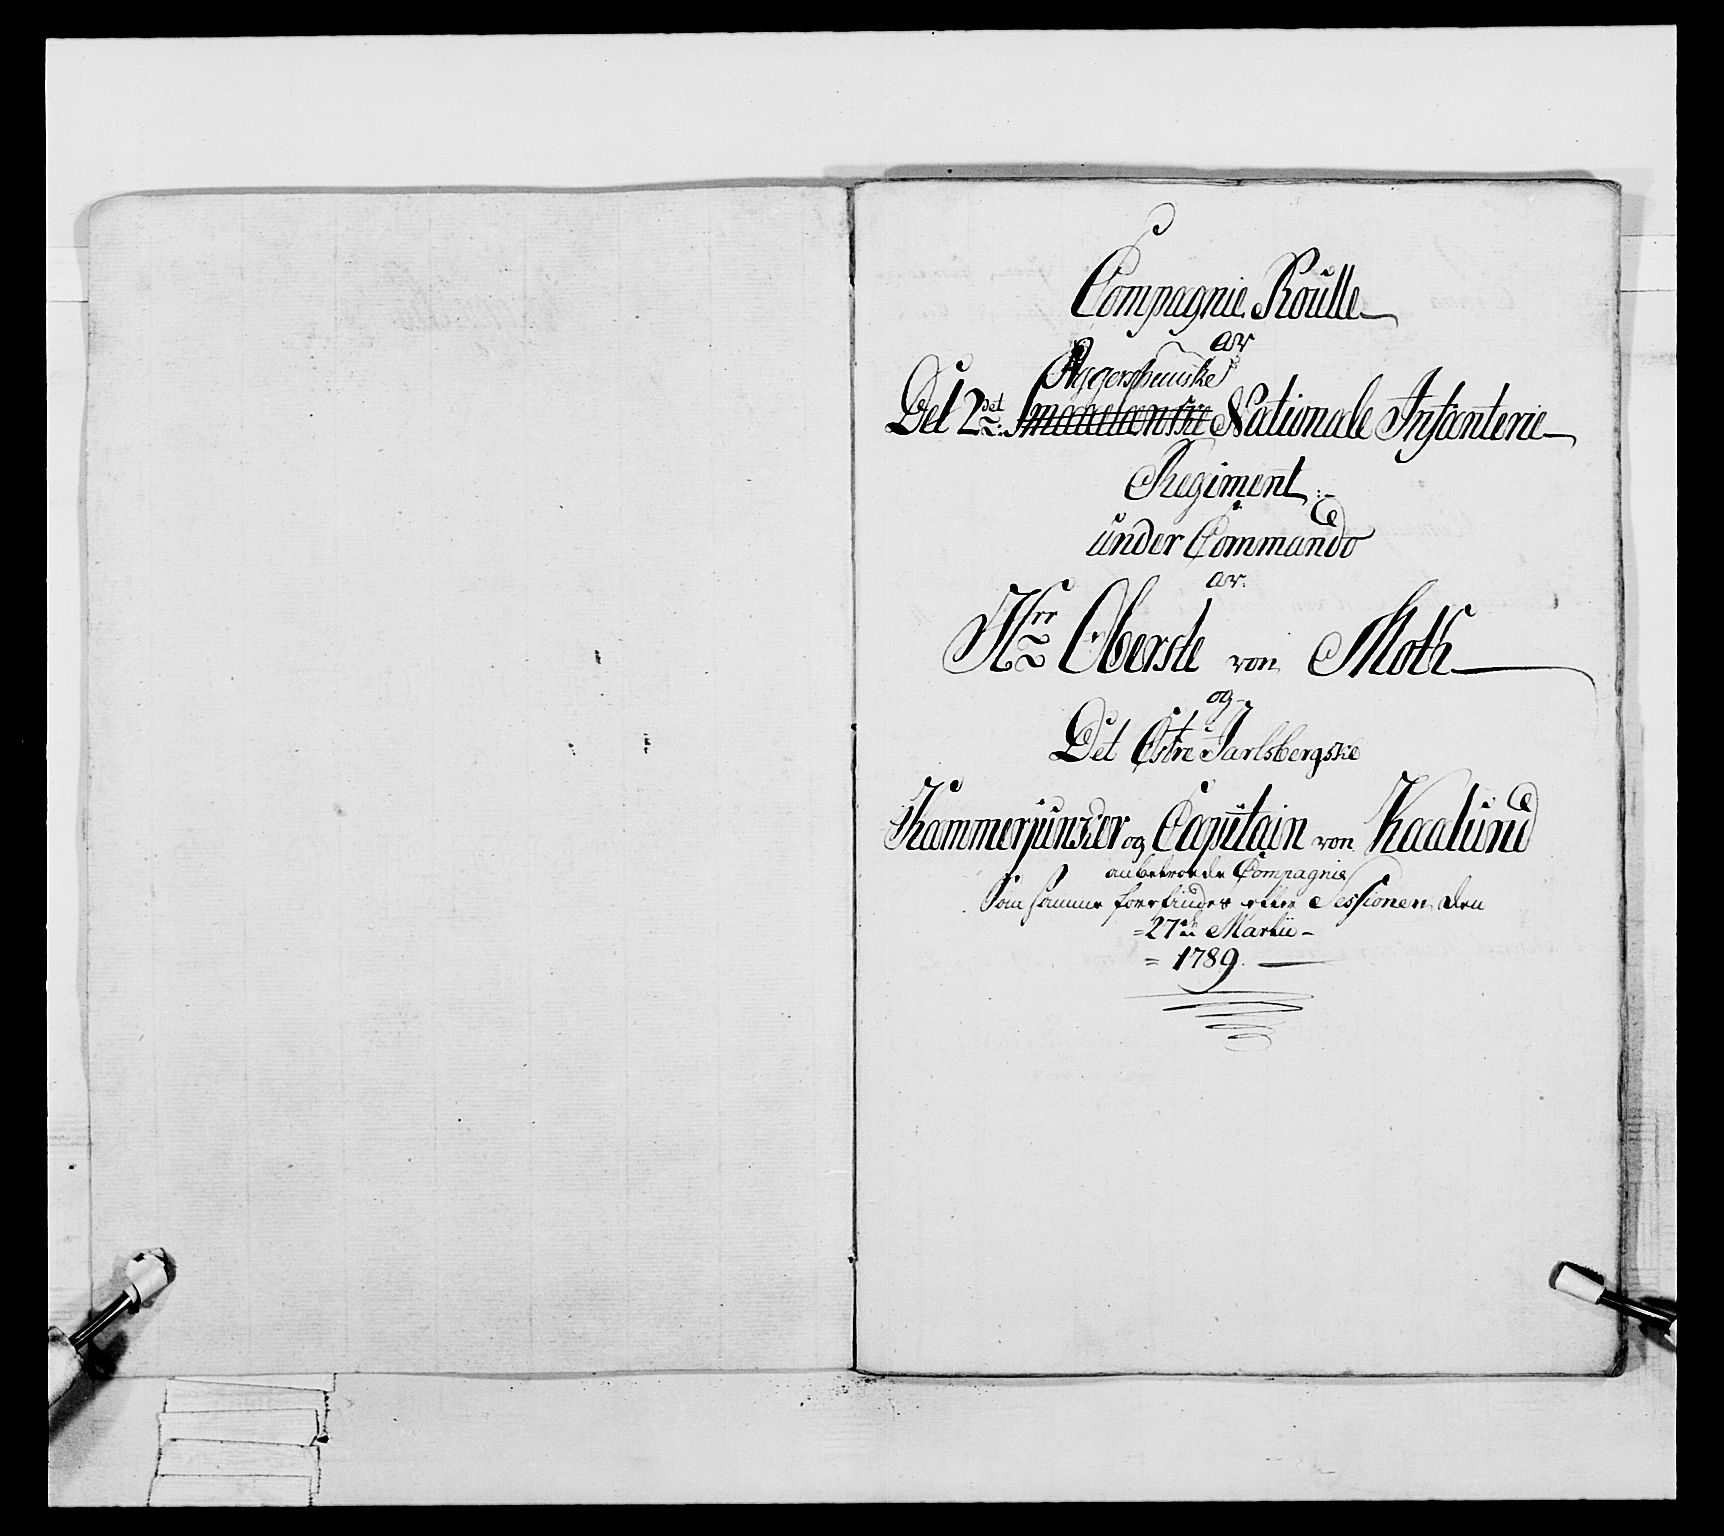 Compagnie Roulle
av
Aggershuuske
Det 2det Smaalenske Nationale Infanterie
Regiment
under Commando
av
Hrr Oberste von Moth
og
Det Østre Jarlsbergske
Kammerjunker og Capitain von Kaalund
anbetroede Compagnie
Som samme forefindes efter Sessionen den
27de Martii
1789